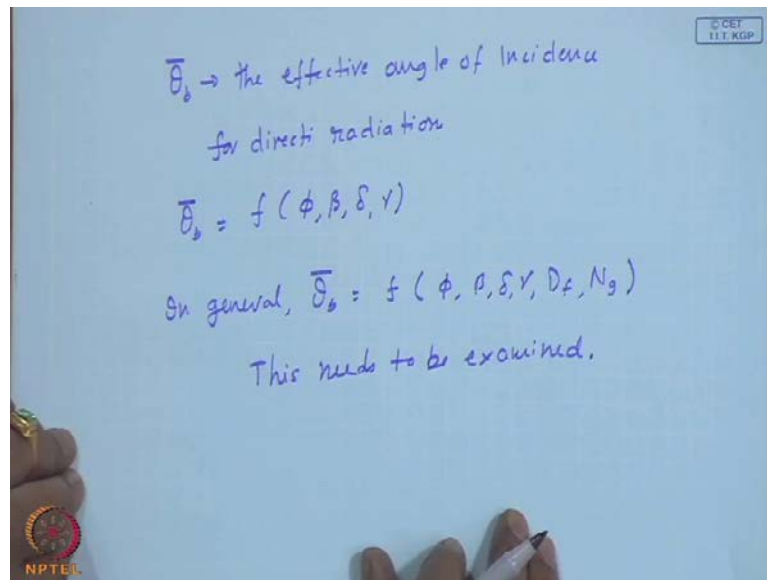 © CET
I.I.T. KGP
θ̄_b → the effective angle of Incidence
for directi radiation
θ̄_b = f ( φ, β, δ, γ)
In general, θ̄_b = f ( φ, β, δ, γ, D_f, N_g )
This needs to be examined.
NPTEL